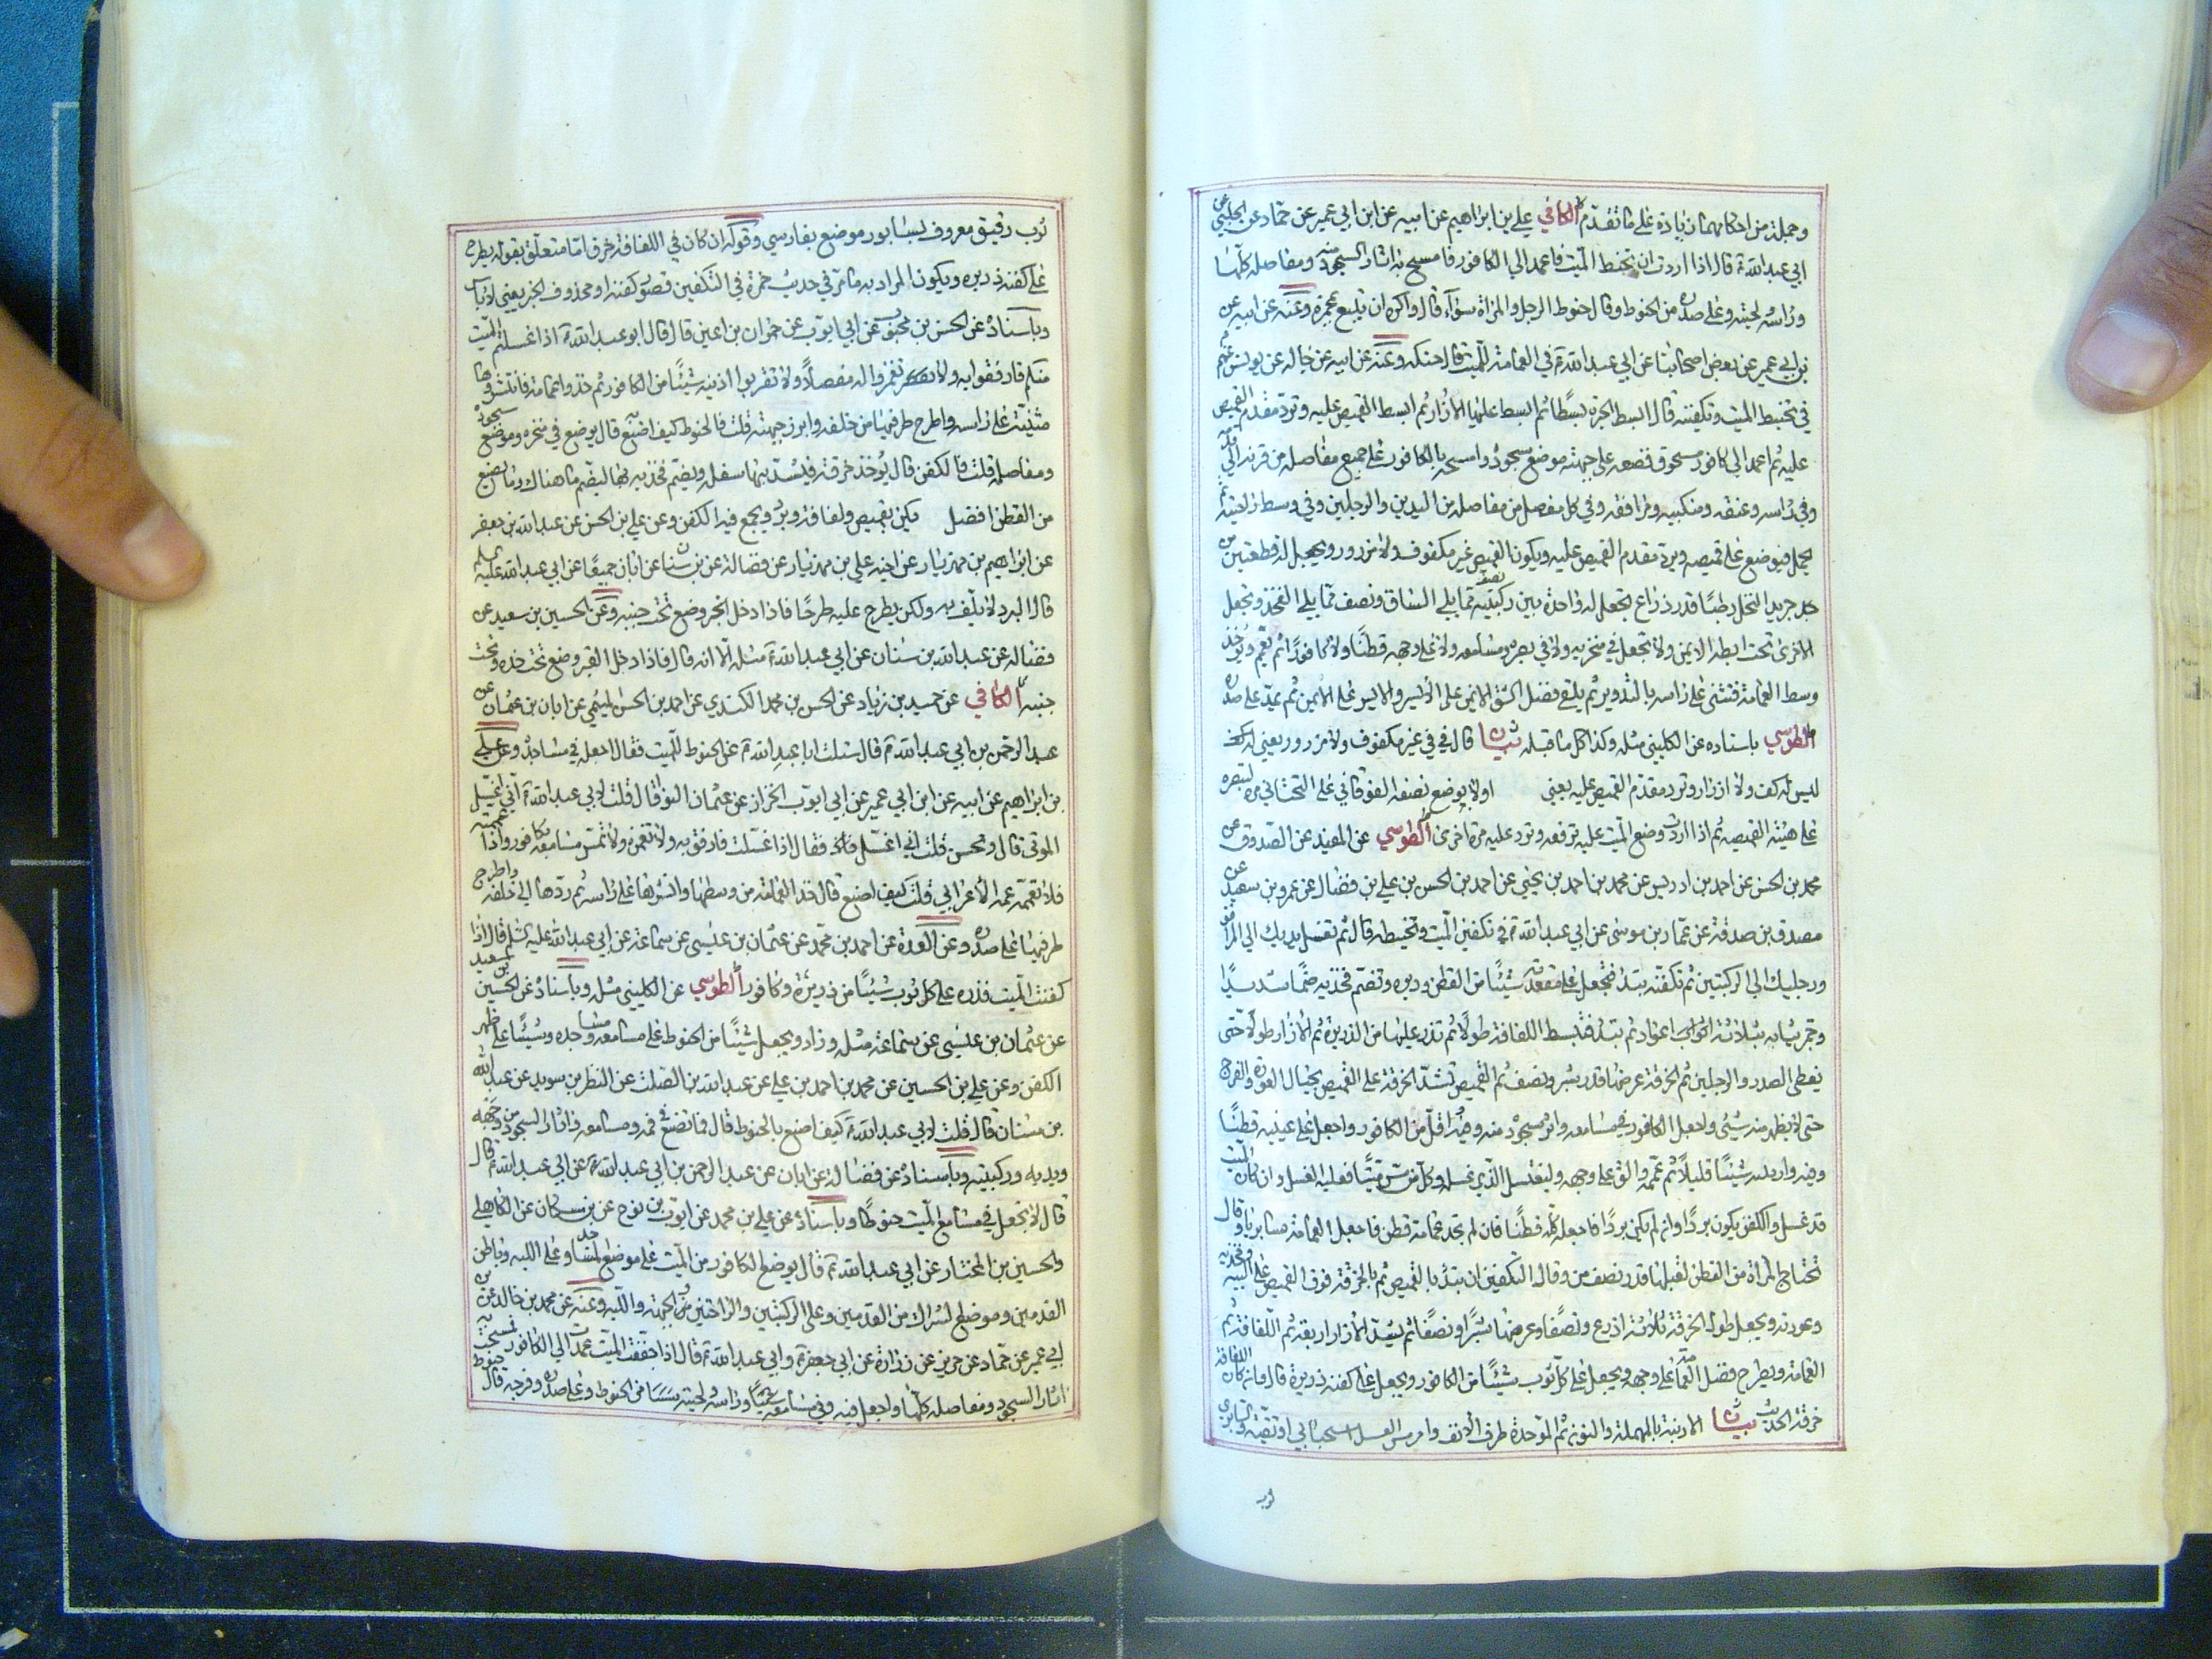 وجملة من احكامهما زيادة على ما تقدم الكافي علي بن ابراهيم عن ابيه عن ابن ابي عمير عن حماد عن الحلبي عن
ابي عبد الله ع قال اذا اردت ان تحنط الميت فاعمد الى الكافور فامسح به اثار السجود منه ومفاصله كلها
وراسه ولحيته وعلى صدره من الحنوط وقال حنوط الرجل والمراة سواء قال واكره ان يتبع بمجمرة وعنه عن ابيه عن
بن ابي عمير عن بعض اصحابنا عن ابي عبد الله ع في العمامة للميت قال حنكه وعنه عن ابيه عن رجاله عن يونس عنهم
في تحنيط الميت وتكفينه قال ابسط الحبرة بسطا ثم ابسط عليها الازار ثم ابسط القميص عليه وترد مقدم القميص
عليه ثم اعمد الى كافور مسحوق فضعه على جبهته موضع سجوده وامسح بالكافور على جميع مفاصله من قرنه الى قدمه
وفي راسه وعنقه ومنكبيه ومرافقه وفي كل مفصل من مفاصله من اليدين والرجلين وفي وسط راحتيه ثم
يحمل فيوضع على قميصه ويرد مقدم القميص عليه ويكون القميص غير مكفوف ولا مزرور ويجعل له قطعتين من
جريد النخل رطبا قدر ذراع يجعل له واحدة بين ركبتيه نصف مما يلي الساق ونصف مما يلي الفخذ ويجعل
الاخرى تحت ابطه الايمن ولا تجعل في منخريه ولا في بصره ومسامعه ولا على وجهه قطنا ولا كافورا ثم يعمم ويؤخذ
وسط العمامة فتثنى على راسه بالتدوير ثم يلقى فضل الشق الايمن على الايسر والايسر على الايمن ثم يمد على صدره
الطوسي باسناده عن الكليني مثله وكذا كل ما قبله بيان قال في في غير مكفوف ولا مزرور يعني
ليس له كف ولا ازرار وترد مقدم القميص عليه يعني اولا يوضع نصفه الفوقاني على التحتاني مرة
على هيئة القميص ثم اذا اردت وضع الميت عليه ترفعه وترد عليه مرة اخرى الطوسي عن المفيد عن الصدوق عن
محمد بن الحسن عن احمد بن ادريس عن محمد بن احمد بن يحيى عن احمد بن الحسن بن علي بن فضال عن عمرو بن سعيد عن
مصدق بن صدقة عن عمار بن موسى عن ابي عبد الله ع في تكفين الميت وتحنيطه قال ثم تغسل يديك الى المرافق
ورجليك الى الركبتين ثم تكفنه تبدا فتجعل على مقعدته شيئا من القطن وذريرة وتضم فخذيه ضما شديدا
وجمر ثيابه بثلاثة اعواد ثم تبدا فتبسط اللفافة طولا ثم تذر عليها من الذريرة ثم الازار طولا حتى
يغطي الصدر والرجلين ثم الخرقة عرضها قدر شبر ونصف ثم القميص تشد الخرقة على القميص بحيال العورة والفرج
حتى لا يظهر منه شيئ واجعل الكافور في مسامعه واثر سجوده منه وفيه اقل من الكافور واجعل على عينيه قطنا
وفيه شيئا قليلا ثم عممه والق على وجهه وليغتسل الذي غسله وكل من مس ميتا فعليه الغسل وان كان الميت
قد غسل والكفن يكون بردا وان لم يكن بردا فاجعله كله قطنا فان لم تجد عمامة قطن فاجعل العمامة سابريا وقال
تحتاج المراة من القطن لقبلها قدر نصف من وقال التكفين ان تبدا بالقميص ثم بالخرقة فوق القميص على اليتيه وفخذيه
وعورته ويجعل طول الخرقة ثلاثة اذرع ونصفا وعرضها شبرا ونصفا ثم يشد الازار اربعة ثم اللفافة ثم
العمامة ويطرح فضل العمامة على وجهه ويجعل على كل ثوب شيئا من الكافور ويجعل على كفنه ذريرة قال فان كان اللفافة
خرقة الحديث بيان الارنبة بالمهملة والنون ثم الموحدة طرف الانف
ثوب
ثوب رقيق معروف بسابور موضع بفارس وقوله ان كان في اللفافة خرق اما متعلق بقوله يطرح
على كفنه ذريرة ويكون المراد به ما مر في حديث حمزة في التكفين او محذوف الخبر يعني لا باس
وباسناده عن الحسن بن محبوب عن ابي ايوب عن حمران بن اعين قال قال ابو عبد الله ع اذا غسلتم الميت
منكم فارفقوا به ولا تغمزوا له مفصلا ولا تقربوا اذنيه شيئا من الكافور ثم خذوا عمامته فانشروها
مثنية على راسه واطرح طرفيها من خلفه وابرز جبهته قلت فالحنوط كيف اصنع قال يوضع في منخره وموضع سجوده
ومفاصله قلت فالكفن قال يؤخذ خرقة فيشد بها سفله ويضم فخذيه بها ليضم ما هناك وما يصنع
من القطن افضل يكفن بقميص ولفافة وبرد ويجمع فيه الكفن وعن علي بن الحسن عن عبد الله بن جعفر
عن ابراهيم بن مهزيار عن اخيه علي بن مهزيار عن فضالة عن بن سنان عن ابان جميعا عن ابي عبد الله عليه السلم
قال البرد لا يلف به ولكن يطرح عليه طرحا فاذا دخل القبر وضع تحت جنبه وعن الحسين بن سعيد عن
فضالة عن عبد الله بن سنان عن ابي عبد الله ع مثله الا انه قال فاذا ادخل القبر وضع تحت خده وتحت
جنبه الكافي عن حميد بن زياد عن الحسن بن محمد الكندي عن احمد بن الحسن الميثمي عن ابان بن عثمان عن
عبد الرحمن بن ابي عبد الله ع قال سئلت ابا عبد الله ع عن الحنوط للميت فقال اجعله في مساجده وعن علي
بن ابراهيم عن ابيه عن ابن ابي عمير عن ابي ايوب الخزاز عن عثمان النوا قال قلت لابي عبد الله ع اني اغسل
الموتى قال وتحسن قلت اني اغسل فقال اذا غسلت فارفق به ولا تغمزه ولا تمس مسامعه بكافور واذا عممته
فلا تعممه عمة الاعرابي قلت كيف اصنع قال خذ العمامة من وسطها وانشرها على راسه ثم ردها الى خلفه واطرح
طرفيها على صدره وعن العدة عن احمد بن محمد عن عثمان بن عيسى عن سماعة عن ابي عبد الله عليه السلم قال اذا
كفنت الميت فذره على كل ثوب شيئا من ذريرة وكافور الطوسي عن الكليني مثله وباسناده عن الحسين بن سعيد
عن عثمان بن عيسى عن سماعة مثله وزاد ويجعل شيئا من الحنوط على مسامعه ومساجده وشيئا على ظهر
الكفن وعن علي بن الحسين عن محمد بن احمد بن علي عن عبد الله بن الصلت عن النظر بن سويد عن عبد الله
بن سنان قال قلت لابي عبد الله ع كيف اصنع بالحنوط قال تضع في فمه ومسامعه واثار السجود من وجهه
ويديه وركبتيه وباسناده عن فضالة عن ابان عن عبد الرحمن بن ابي عبد الله ع عن ابي عبد الله ع قال
قال لا تجعل في مسامع الميت حنوطا وباسناده عن علي بن محمد عن ايوب بن نوح عن بن مسكان عن الكاهلي
والحسين بن المختار عن ابي عبد الله ع قال يوضع الكافور من الميت على موضع المساجد وعلى اللبة وباطن
القدمين وموضع الشراك من القدمين وعلى الركبتين والراحتين والجبهة واللبة وعنه عن محمد بن خالد عن بن
ابي عمير عن حماد عن حريز عن زرارة عن ابي جعفر ع وابي عبد الله ع قال اذا جففت الميت عمدت الى الكافور فمسحت به
اثار السجود ومفاصله كلها واجعل فيه وفي مسامعه وراسه ولحيته شيئا من الحنوط وعلى صدره وفرجه قال حنوط